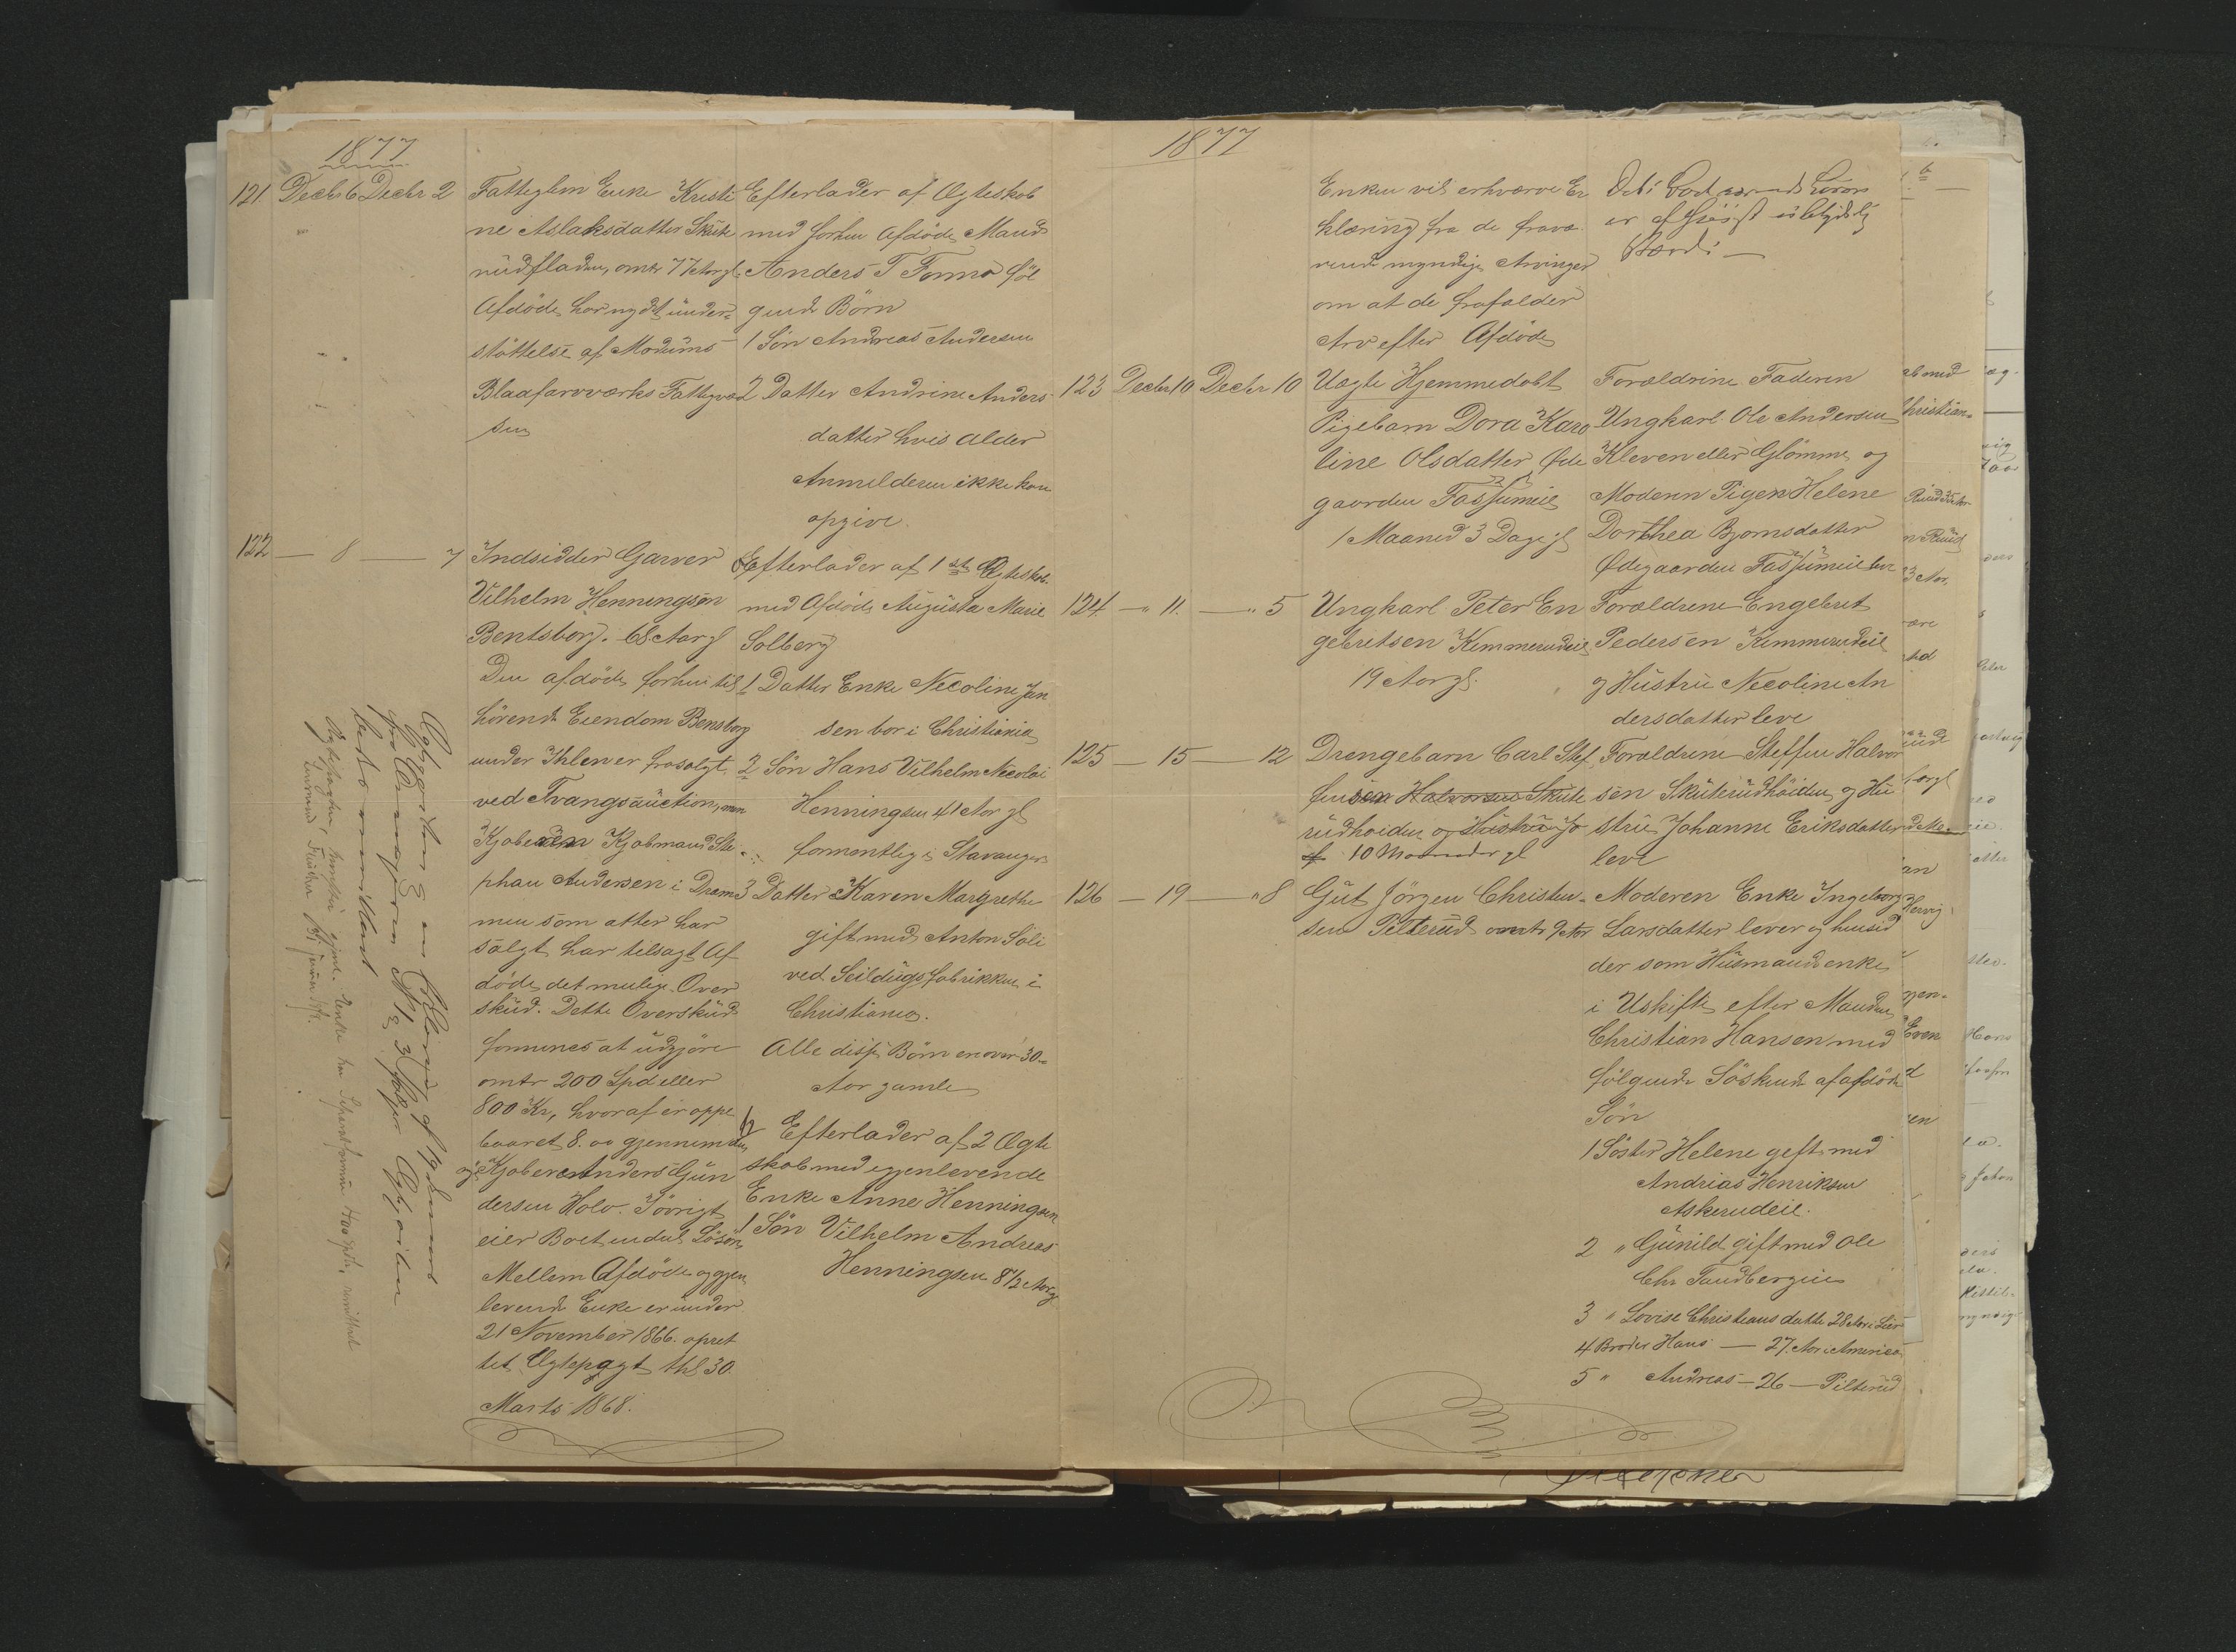 1877
121. Decbr 6 Decbr 2
Fattiglem Enke Kristi
ne Aslaksdatter Skute
rudfladen, omtr 77 Aar gl.
Afdöde har nydt under-
støttelse af Modums
Blaafarveværks Fattigvæ
sen
Efterlader af Ægteskab
med forhen Afdöde Mand
Anders T Fonno föl
gende Börn
1 Sön Andreas Andersen
2 Datter Andrine Anders
datter hvis Alder
Anmelderen ikke kan
opgive.
122 — 8 — 7
Indsidder Garver
Vilhelm Henningsen
Bentsborg. 68 Aar gl
Den afdöde forhen til
hörende Eiendom Bensborg
under Ihlen er frasolgt
ved Tvangsauction, men
Kjøberen Kjøbmand Ste
phan Andersen i Dram
men som atter har
solgt har tilsagt Af
döde det mulige Over
skud. Dette Overskud
formenes at udgjöre
omtr 200 Spd eller
800 Kr, hvoraf er oppe
baaret 8. oo gjennem den
ny Kjøber Anders Gun
dersen Holv. Iövrigt
eier Boet endel Lösöre
Mellem Afdöde og gjen
levende Enke er under
21 November 1866. opret
tet Ægtepagt thl 30.
Marts 1868.
Efterlader af 1ste Ægteskab
med Afdöde Augusta Marie
Solberg
1 Datter Enke Necoline Jan
sen bor i Christiania
2 Sön Hans Vilhelm Necolai
Henningsen 41 Aar gl
formentlig i Stavanger
3 Datter Karen Margrethe
gift med Anton Söli
ved Seildugsfabrikken i
Christiania.
Alle disse Börn er over 30-
Aar gamle
Efterlader af 2 Ægte
skab med igjenlevende
Enke Anne Henningsen
1 Sön Vilhelm Andreas
Henningsen 8 1/2 Aar gl
1877
Enken vil erhverve Er
klæring fra de fravæ
rende myndige Arvinger
om at de frafalder
Arv efter Afdöde
Det i Boet værende Lösöre
er af höist ubetydelig
Værdi —
123 Decbr 10 Decbr 10
Uægte Hjemmedöbt
Pigebarn Dora Karo
line Olsdatter Øde
gaarden Fossumeie
1 Maaned 3 Dage gl
Forældrene Faderen
Ungkarl Ole Andersen
Kleven eller Glömme og
Moderen Pigen Helene
Dorthea Bjornsdatter
Ødegaarden Fossumeie leve
124 — " 11. — " 5
Ungkarl Peter En
gebretsen Kemmerudeie
19 Aar gl.
Forældrene Engebret
Pedersen Kemmerudeie
og Hustru Necoline An
dersdatter leve
125 — 15 — 12
Drengebarn Carl Stef
fensen Halvorsen Skute
rudhöiden og Hustru Jo
10 Maaneder gl
Forældrene Steffen Halvor
sen Skuterudhöiden og Hu
stru Johanne Eriksdatter
leve
126 — 19 — " 8
Gut Jörgen Christen-
sen Pilterud omtr 9 Aar
Moderen Enke Ingeborg
Larsdatter lever og hensid
der som Husmandsenke
i Uskifte efter Manden
Christian Hansen med
fölgende Söskende af afdöde
Sön
1 Söster Helene gift med
Andrias Henriksen
Askerudeie.
2 " Gunild gift med Ole
Chr Tandbergeie
3 " Lovise Christians datter 28 Aar i Lier
4 Broder Hans — 27 Aar i America
5 " Andreas — 26 — Pilterud